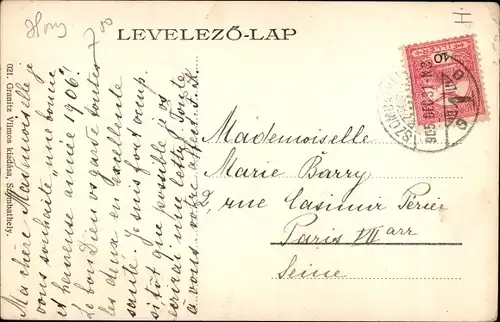 Hong
LEVELEZŐ-LAP
H.
021. Granitz Vilmos kiadása, Szombathely.
Ma chère Mademoiselle je
vous souhaite „une bonne
et heureuse année 1906"!
Le bon Dieu vs garde toutes
les deux en excellente
santé. Je suis fort occup.
sitôt que possible je vs
écrirai une lettre. Toute
à vous, votre affect.
Mademoiselle
Marie Barry
2, rue Casimir Périer
Paris VII arr
Seine
10